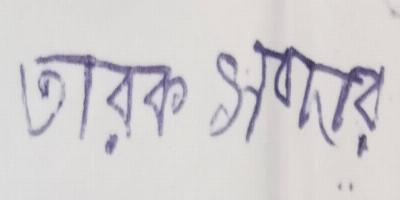 তারক সরদার